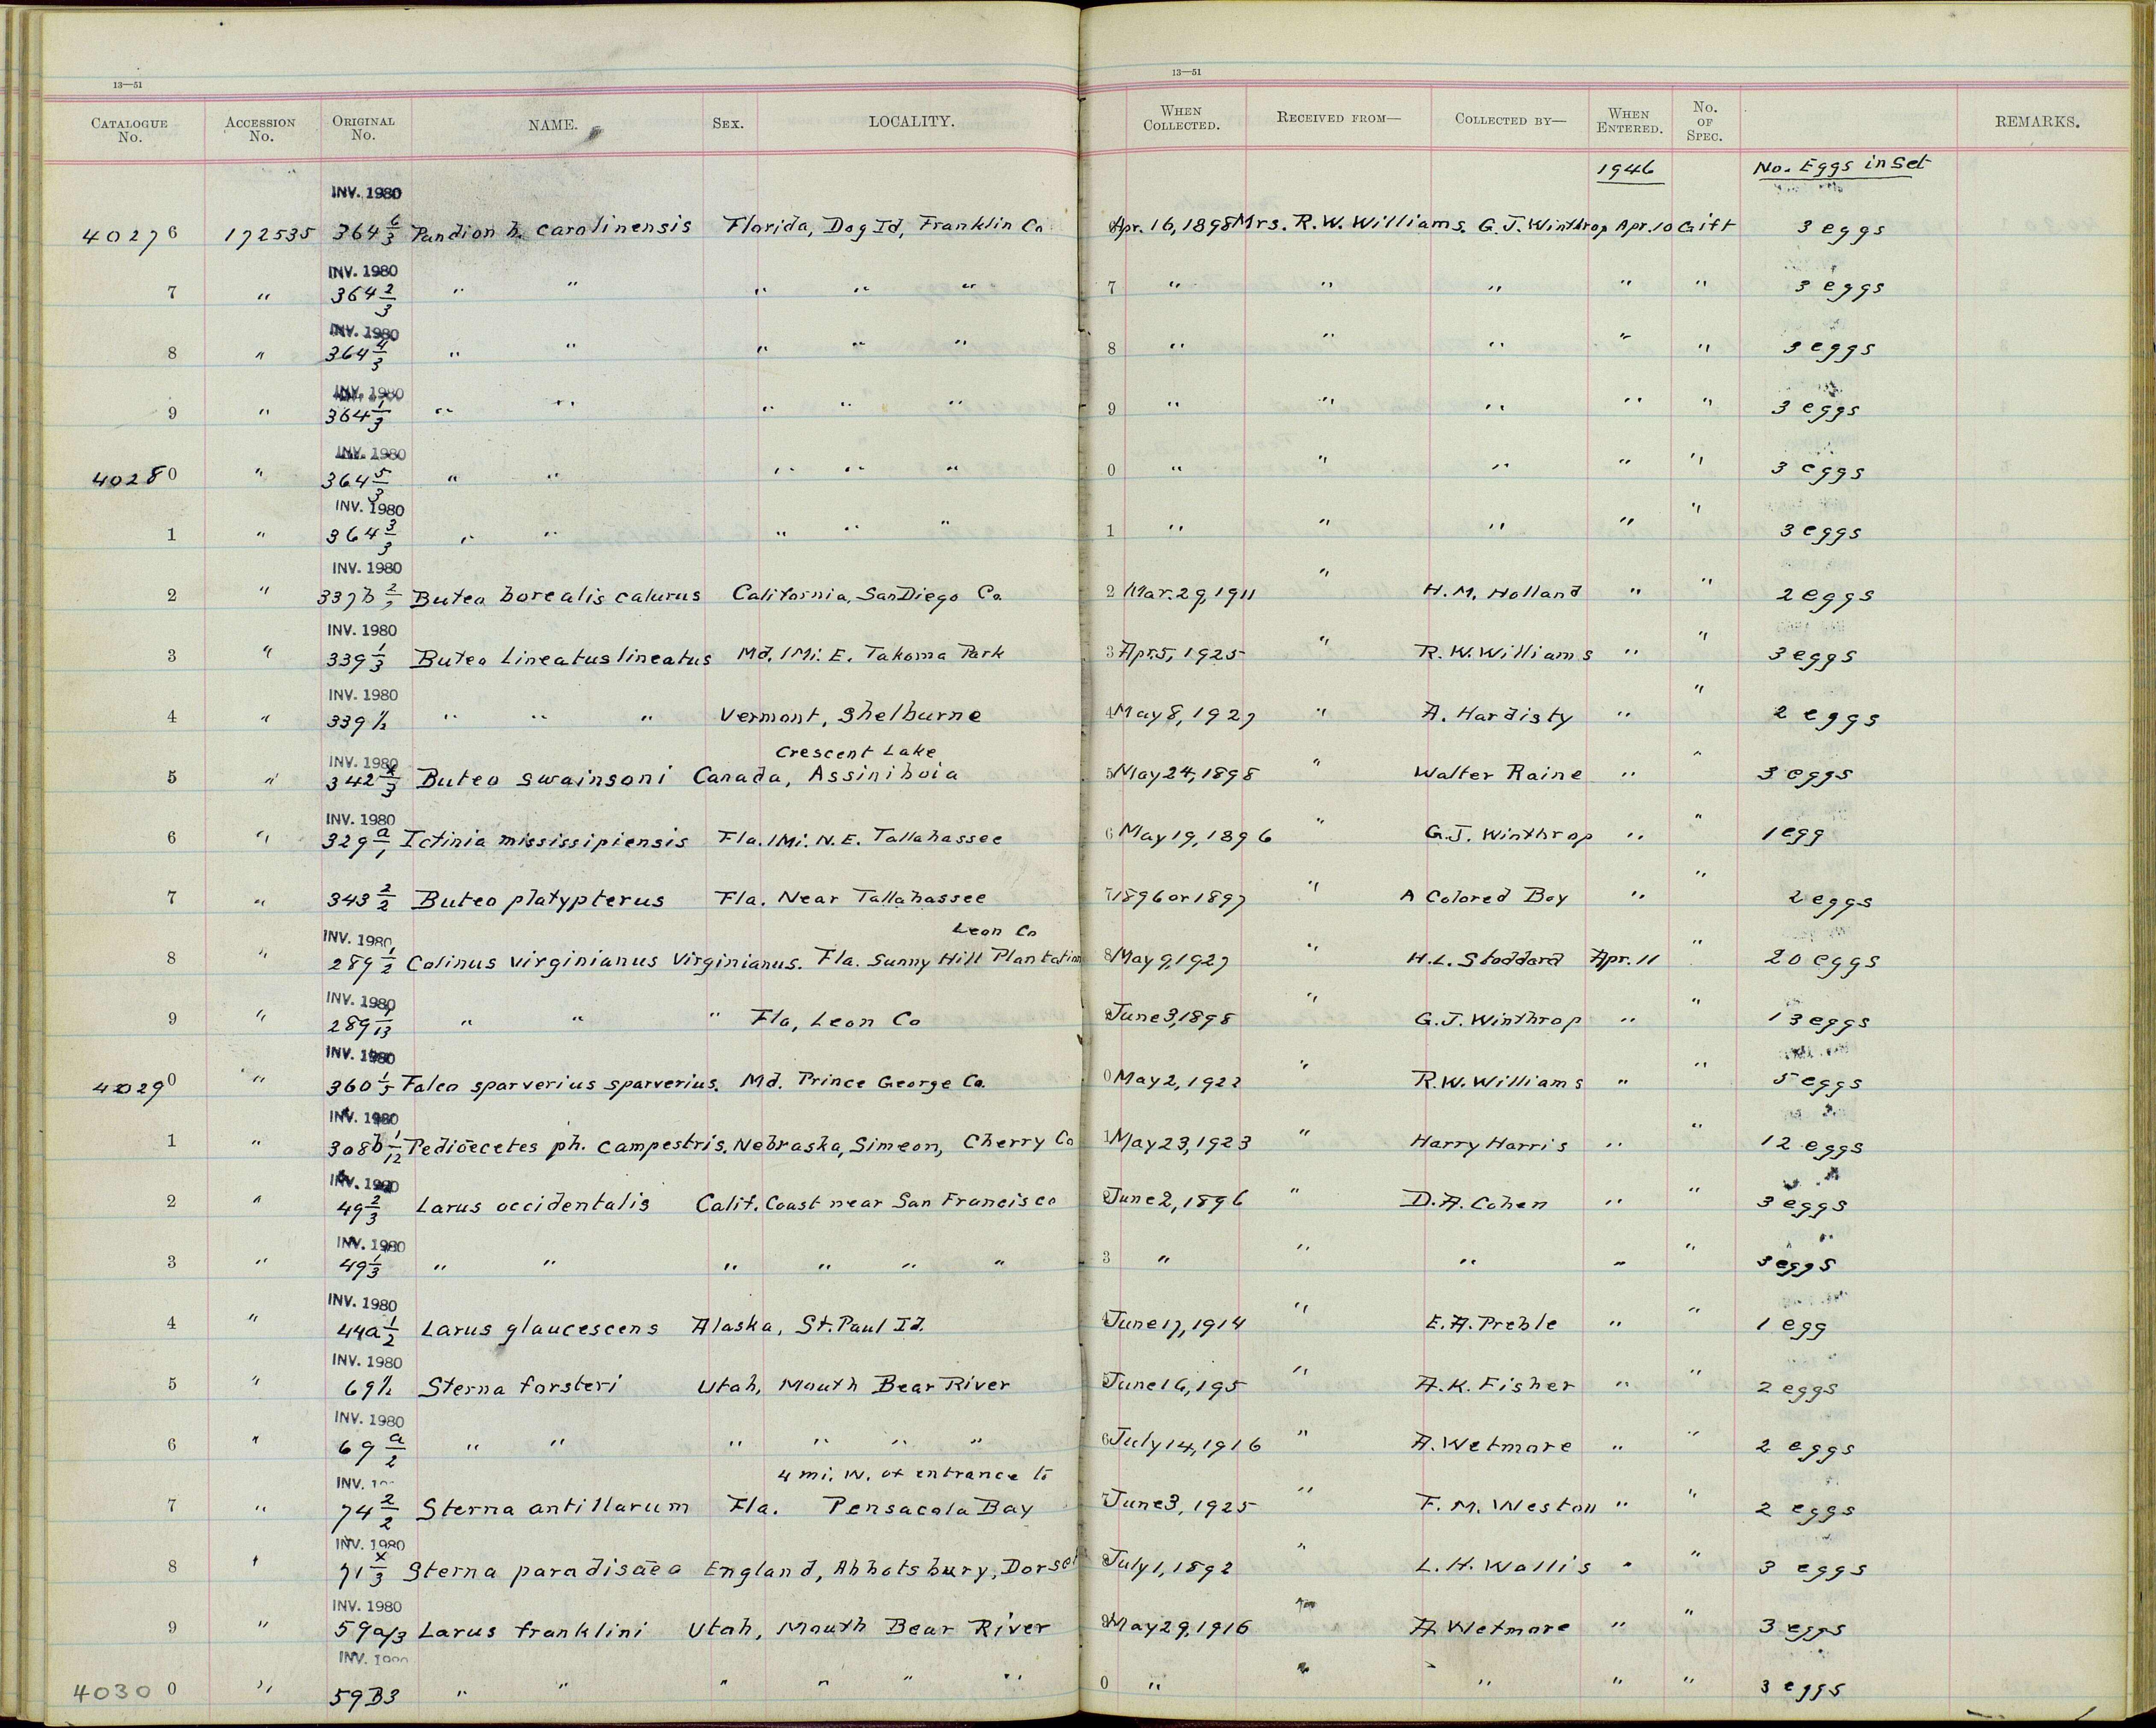 13—51 13—51
CATALOGUE No. ACCESSION No. ORIGINAL No. NAME. SEX. LOCALITY. WHEN COLLECTED. RECEIVED FROM— COLLECTED BY— WHEN ENTERED. No. OF SPEC. REMARKS.
1946 No. Eggs in Set
INV. 1980
40276 172535 364 6/3 Pandion h. carolinensis Florida, Dog Id, Franklin Co Apr. 16, 1898 Mrs. R. W. Williams. G. J. Winthrop Apr. 10 Gift 3 eggs
INV. 1980
7 " 364 2/3 " " " " " 7 " " " " " 3 eggs
INV. 1980
8 " 364 4/3 " " " " " 8 " " " " " 3 eggs
INV. 1980
9 " 364 1/3 " " " " " 9 " " " " " 3 eggs
INV. 1980
40280 " 364 5/3 " " " " " 0 " " " " " 3 eggs
INV. 1980
1 " 364 3/3 " " " " " 1 " " " " " 3 eggs
INV. 1980
2 " 337b 2/2 Buteo borealis calurus California, San Diego Co. 2 Mar. 29, 1911 " H. M. Holland " " 2 eggs
INV. 1980
3 " 339 1/3 Buteo Lineatus lineatus Md. 1 Mi. E. Takoma Park 3 Apr. 5, 1925 " R. W. Williams " " 3 eggs
INV. 1980
4 " 339 1/2 " " " Vermont, Shelburne 4 May 8, 1927 " A. Hardisty " " 2 eggs
Crescent Lake
INV. 1980
5 " 342 x/3 Buteo swainsoni Canada, Assiniboia 5 May 24, 1898 " Walter Raine " " 3 eggs
INV. 1980
6 " 329 a/1 Ictinia mississipiensis Fla. 1 Mi. N. E. Tallahassee 6 May 19, 1896 " G. J. Winthrop " " 1 egg
7 " 343 2/2 Buteo platypterus Fla. Near Tallahassee 7 1896 or 1897 " A Colored Boy " " 2 eggs
Leon Co
INV. 1980
8 " 289 1/2 Colinus virginianus virginianus. Fla. Sunny Hill Plantation 8 May 9, 1927 " H. L. Stoddard Apr. 11 " 20 eggs
INV. 1980
9 " 289 1/13 " " " Fla, Leon Co June 3, 1898 " G. J. Winthrop " " 13 eggs
INV. 1980
40290 " 360 1/5 Falco sparverius sparverius. Md. Prince George Co. 0 May 2, 1922 " R. W. Williams " " 5 eggs
INV. 1980
1 " 308b 1/12 Pedioecetes ph. campestris. Nebraska, Simeon, Cherry Co 1 May 23, 1923 " Harry Harris " " 12 eggs
INV. 1980
2 " 49 2/3 Larus occidentalis Calif. Coast near San Francisco June 2, 1896 " D. A. Cohen " " 3 eggs
INV. 1980
3 " 49 1/3 " " " " " " 3 " " " " " 3 eggs
INV. 1980
4 " 44a 1/2 Larus glaucescens Alaska, St. Paul Id. June 17, 1914 " E. A. Preble " " 1 egg
INV. 1980
5 " 69 1/2 Sterna forsteri Utah, Mouth Bear River June 16, 195 " A. K. Fisher " " 2 eggs
INV. 1980
6 " 69 a/2 " " " " " " 6 July 14, 1916 " A. Wetmore " " 2 eggs
4 mi. W. of entrance to
INV.
7 " 74 2/2 Sterna antillarum Fla. Pensacola Bay June 3, 1925 " F. M. Weston " " 2 eggs
INV. 1980
8 " 71 x/3 Sterna paradisaea England, Abbotsbury, Dorset July 1, 1892 " L. H. Wallis " " 3 eggs
INV. 1980
9 " 59a/3 Larus franklini Utah, Mouth Bear River May 29, 1916 " A Wetmore " " 3 eggs
INV.
40300 " 59B3 " " " " " " 0 " " " " " 3 eggs